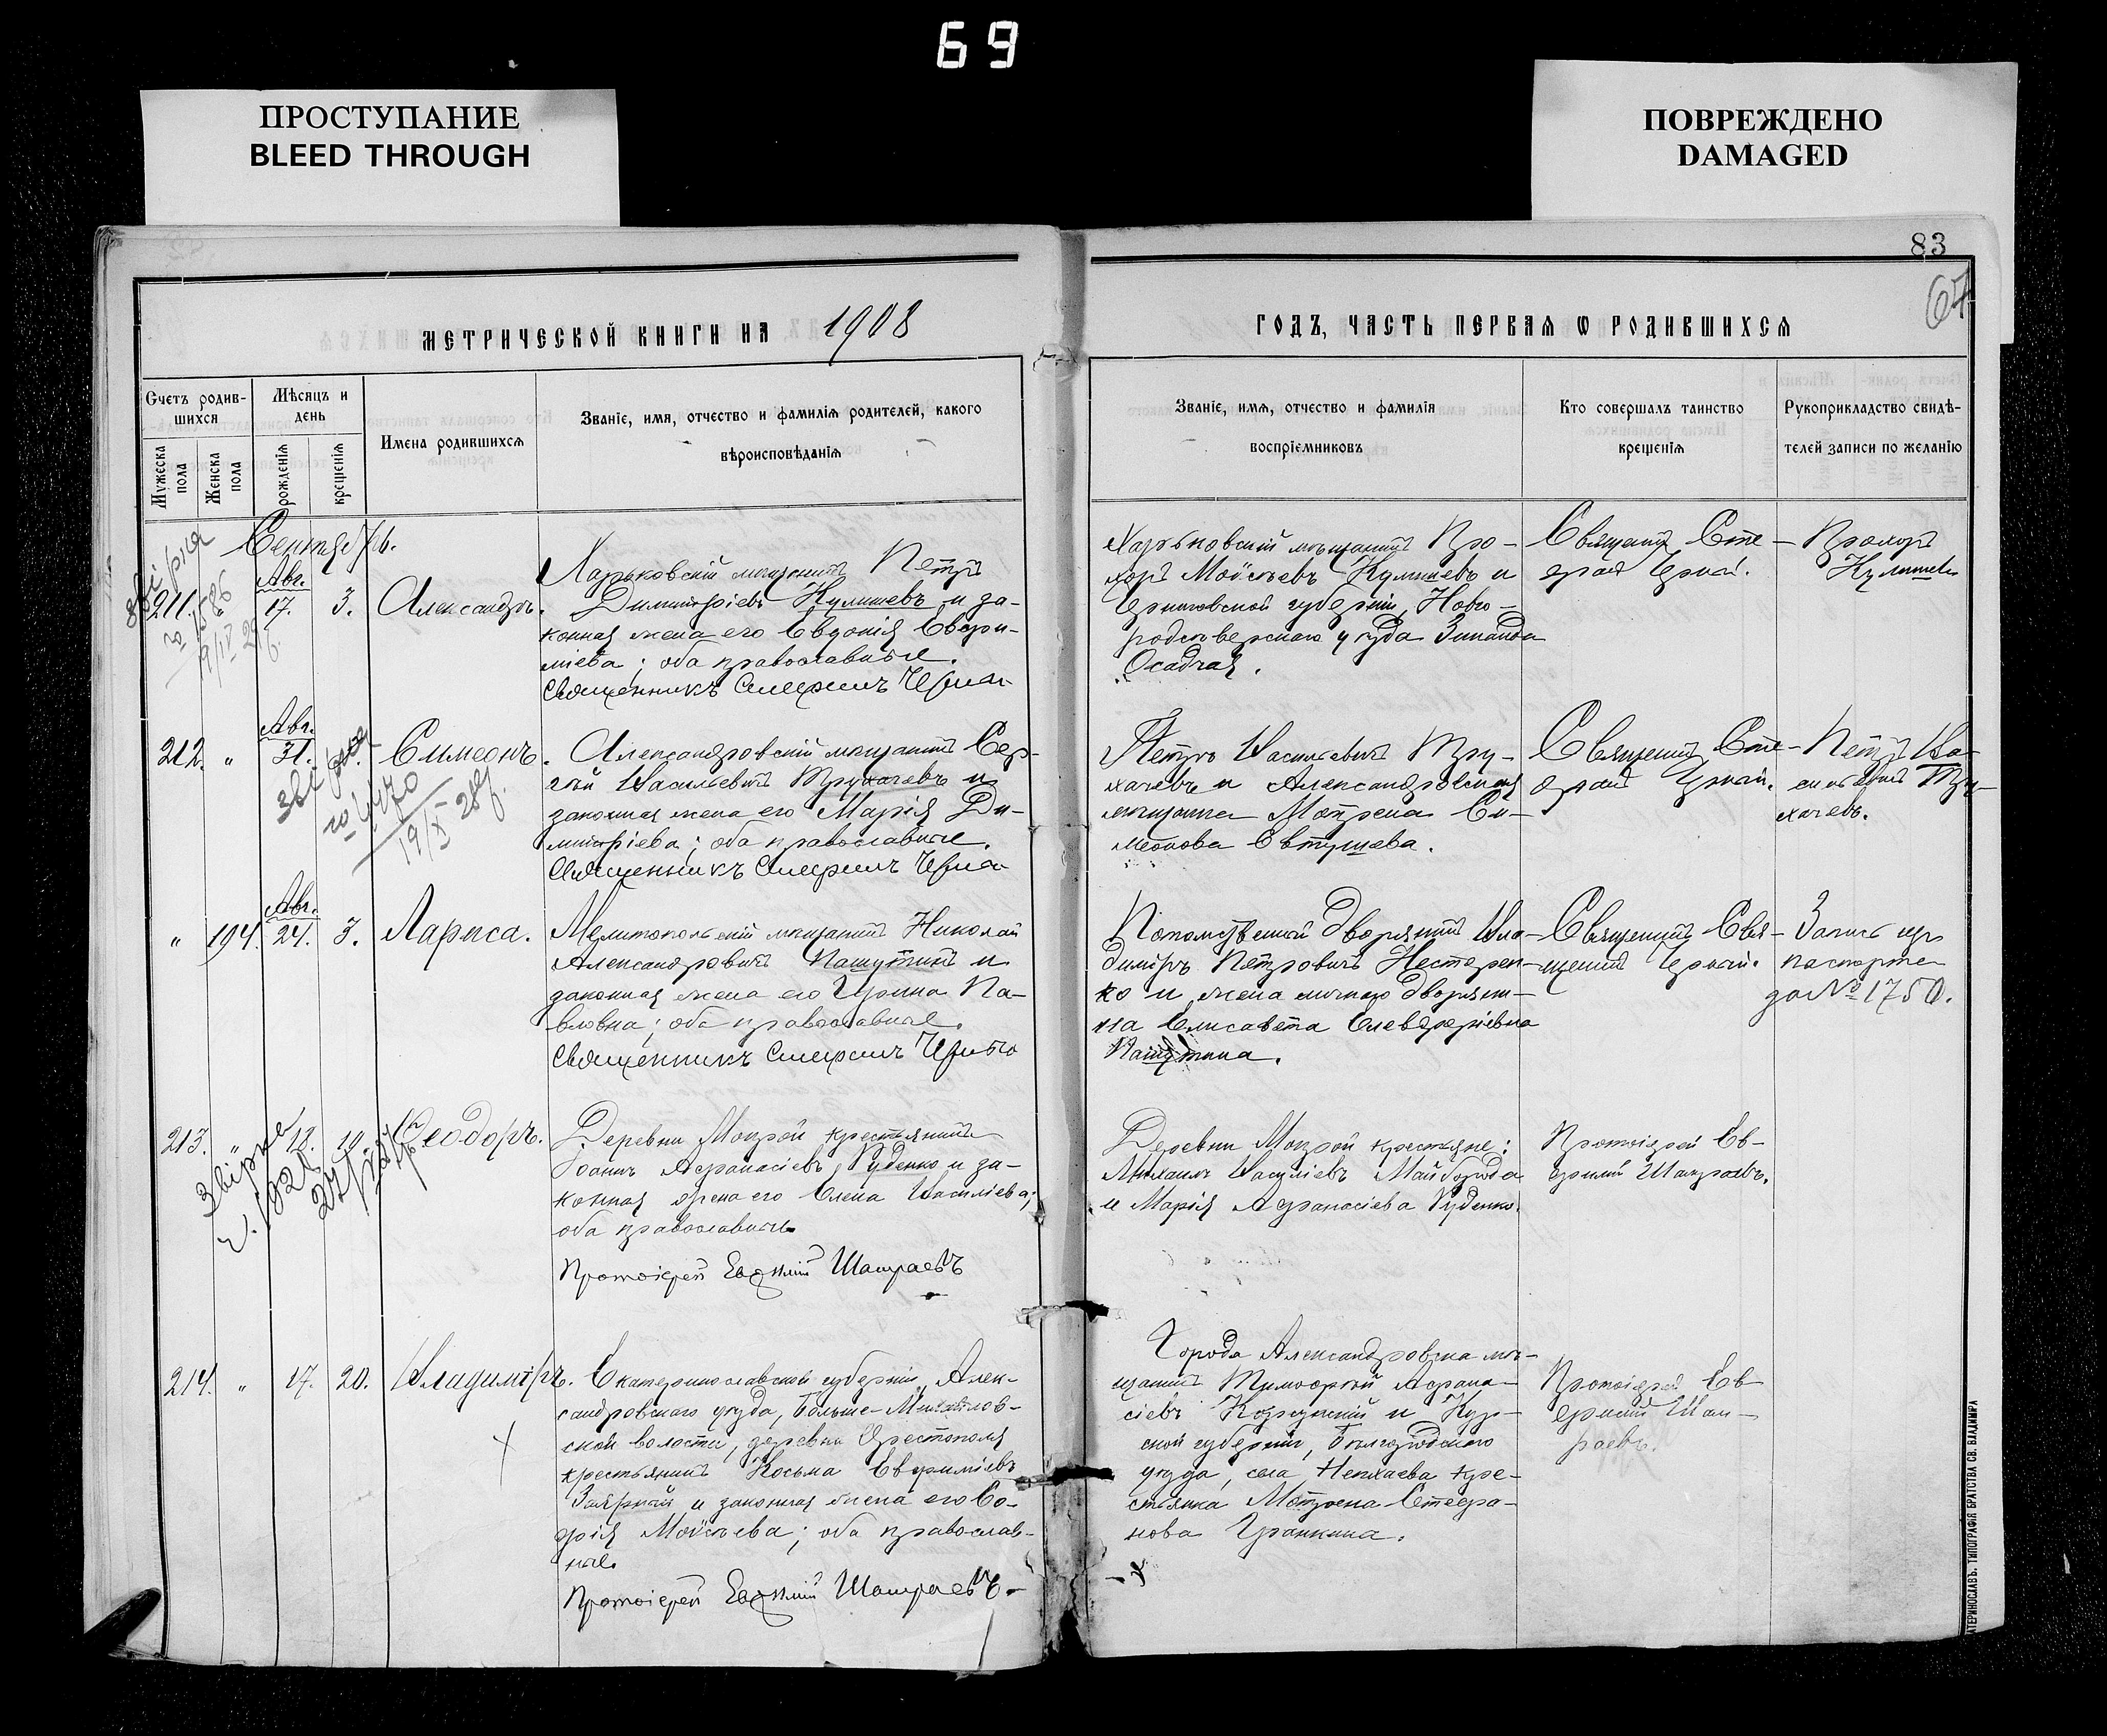 69
ПРОСТУПАНИЕ
BLEED THROUGH
ПОВРЕЖДЕНО
DAMAGED
83
67
МЕТРИЧЕСКОЙ КНИГИ НА 1908
ГОДЪ, ЧАСТЬ ПЕРВАЯ Ѡ РОДИВШИХСЯ
Счетъ родив-
шихся
Мужеска
пола
Женска
пола
Мѣсяцъ и
день
рожденія
крещенія
Имена родившихся
Званіе, имя, отчество и фамилія родителей, какого
вѣроисповѣданія
Званіе, имя, отчество и фамилія
воспріемниковъ
Кто совершалъ таинство
крещенія
Рукоприкладство свидѣ-
телей записи по желанію
Сентябрь.
211.
Авг.
17.
3.
Александръ.
Харьковскій мѣщанинъ Петръ
Димитріевъ Кулишевъ и за-
конная жена его Евдокія Евѳи-
міева; оба православные.
Священникъ
Харьковскій мѣщанинъ Про-
хоръ Моисѣевъ Кулишевъ и
Черниговской губерніи, Новго-
родсѣверскаго уѣзда Зинаида
Осадчая.
Священникъ Сте-
Прохоръ
Кулишевъ
212.
"
Авг.
31.
Симеонъ.
Александровскій мѣщанинъ Сер-
гѣй Васильевичъ Трухачевъ и
законная жена его Марія Ди-
митріева; оба православные.
Священникъ
Петръ Васильевичъ Тру-
хачевъ и Александровская
мѣщанка Матрена Си-
меонова Евтушева.
Священникъ Сте-
Петръ Ва-
сильевичъ Тру-
хачевъ.
"
194.
Авг.
24.
3.
Лариса.
Мелитопольскій мѣщанинъ Николай
Александровичъ Пашутинъ и
законная жена его Ирина Па-
вловна; оба православные.
Священникъ
Потомственный Дворянинъ Вла-
димиръ Петровичъ Нестерен-
ко и жена личнаго Дворяни-
на Елисавета Елевѳеріевна
Пашутина.
Священникъ
паспорта
за № 1750.
213.
"
18.
19.
Ѳеодоръ.
Деревни Мокрой крестьянинъ
Іоаннъ Аѳанасіевъ Руденко и за-
конная жена его Елена Василіева;
оба православные.
Протоіерей Евѳимій
Деревни Мокрой крестьяне:
Михаилъ Василіевъ Майборода
и Марія Аѳанасіева Руденко.
Протоіерей Ев-
ѳимій
214.
"
17.
20.
Владиміръ.
Екатеринославской губерніи, Алек-
сандровскаго уѣзда, Больше-Михайлов-
ской волости, деревни Орестополя
крестьянинъ Косьма Евѳиміевъ
Заярный и законная жена его Со-
фія Моисѣева; оба православ-
ные.
Протоіерей Евѳимій
Города Александровска мѣ-
щанинъ Тимоѳей Аѳана-
сіевъ и Кур-
ской губерніи, Бѣлгородскаго
уѣзда, села Нехаева кре-
стьянка Матрена Стефа-
нова Гранкина.
Протоіерей Ев-
ѳимій
ТИПОГРАФІЯ БРАТСТВА СВ. ВЛАДИМІРА